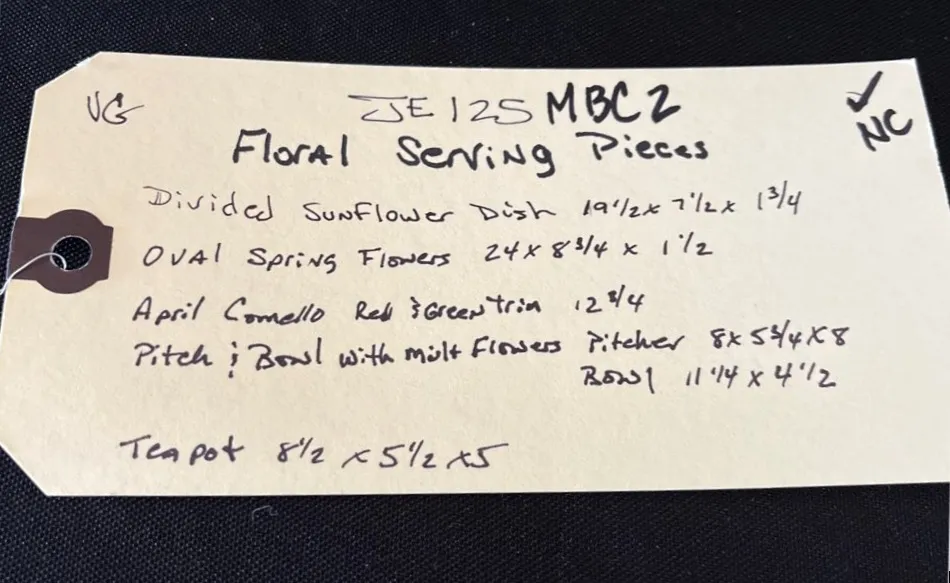 VG JE125 MBC2 ✓ NC
Floral Serving Pieces
Divided Sunflower Dish 19 1/2 x 7 1/2 x 1 3/4
OVAl Spring Flowers 24 x 8 3/4 x 1 1/2
April Comello Red & Green Trim 12 3/4
Pitch & Bowl with Mult Flowers Pitcher 8 x 5 3/4 x 8
Bowl 11 1/4 x 4 1/2
Teapot 8 1/2 x 5 1/2 x 5